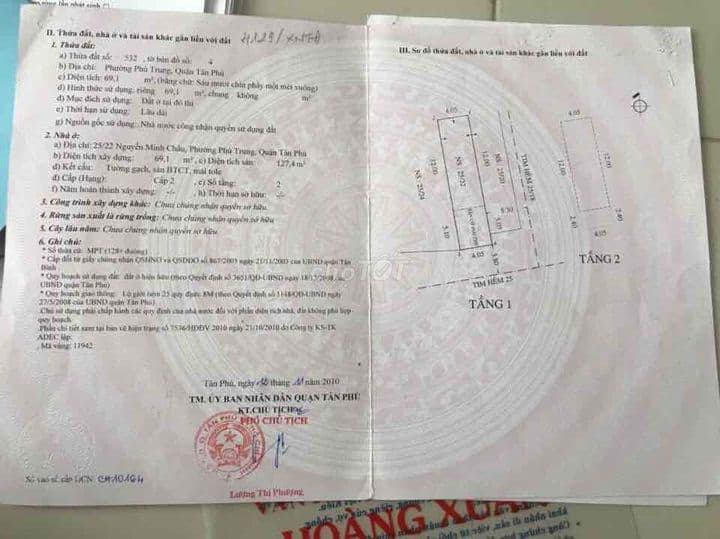 II. Thửa đất, nhà ở và tài sản khác gắn liền với đất
1. Thửa đất:
a) Thửa đất số: 532, tờ bản đồ số: 4
b) Địa chỉ: Phường Phú Trung, Quận Tân Phú
c) Diện tích: 69,1 m², (bằng chữ: Sáu mươi chín phẩy một mét vuông)
d) Hình thức sử dụng: riêng 69,1 m², chung không m²
đ) Mục đích sử dụng: Đất ở tại đô thị
e) Thời hạn sử dụng: Lâu dài
g) Nguồn gốc sử dụng: Nhà nước công nhận quyền sử dụng đất
2. Nhà ở:
a) Địa chỉ: 25/22 Nguyễn Minh Châu, Phường Phú Trung, Quận Tân Phú
b) Diện tích xây dựng: 69,1 m², c) Diện tích sàn: 127,4 m²
d) Kết cấu: Tường gạch, sàn BTCT, mái tole
đ) Cấp (Hạng): Cấp 2, e) Số tầng: 2
f) Năm hoàn thành xây dựng: -/- , h) Thời hạn sở hữu: -/-
3. Công trình xây dựng khác: Chưa chứng nhận quyền sở hữu.
4. Rừng sản xuất là rừng trồng: Chưa chứng nhận quyền sở hữu
5. Cây lâu năm: Chưa chứng nhận quyền sở hữu
6. Ghi chú:
* Số thửa cũ: MPT (128+ đường)
* Cấp đổi từ giấy chứng nhận QSHNO và QSDĐO số 867/2003 ngày 21/11/2003 của UBND quận Tân
Bình
* Quy hoạch sử dụng đất: đất ở hiện hữu (theo Quyết định số 3651/QĐ-UBND ngày 18/12/2008 của
UBND quận Tân Phú)
* Quy hoạch giao thông: Lộ giới hẻm 25 quy định: 8M (theo Quyết định số 1148/QĐ-UBND ngày
27/5/2008 của UBND quận Tân Phú)
Chủ sử dụng phải chấp hành các quy định của nhà nước đối với phần diện tích nhà, đất không phù hợp
quy hoạch.
Phần chi tiết xem tại bản vẽ hiện trạng số 7536/HĐĐV 2010 ngày 21/10/2010 do Công ty KS-TK
ADEC lập.
Mã vàng: 11942
Tân Phú, ngày tháng năm 2010
TM. ỦY BAN NHÂN DÂN QUẬN TÂN PHÚ
KT.CHỦ TỊCH
PHÓ CHỦ TỊCH
Lương Thị Phượng
Số vào sổ cấp GCN: CH10164
III. Sơ đồ thửa đất, nhà ở và tài sản khác gắn liền với đất
4.05
12.00
NS 25/24
NS 25/22
12.00
NS 25/20
TIM HẺM 25/18
5.10
5.30
4.05
TIM HẺM 25
TẦNG 1
4.05
12.00
12.00
2.40
2.40
4.05
TẦNG 2
HOÀNG XUÂN